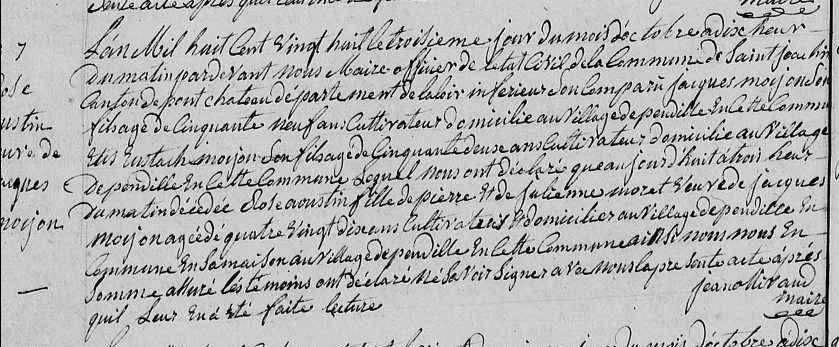 L'án Mil huit Cent Vingt huit le troisieme jour du mois d'octobre a dix heur
7
Du matin pardevant nous Maire officier de letat Civil de la Commune de Saint Joachim
Canton de pont chateau département de la loir inferieur son Comparü jacques moyon son
fils agé de Cinquante neuf ans Cultivateur domicilié au village de pendille En Cette Commun
Et is Eustach moyon son fils agé de Cinquante deuse ans Cultivateur domicilié au village
De pendille En Cette Commune Lequel nous ont déclaré que aujourd'huit a trois heur
Du matin décédée close aoustin fille de pierre Et de julienne moret Veuve de jacques
moyon agé de quatre Vingt dix ans Cultivateurs Et domicilier au village de pendille En
Commune En sa maison au village de pendille En Cette Commune ainsi nous nous En
somme assuré les temoins ont déclaré ne savoir signer a vec nous la présente acte aprés
quil Leur En a été faite lecture
jean olliveaud
maire
ustin
uve de
acques
moyon
maire